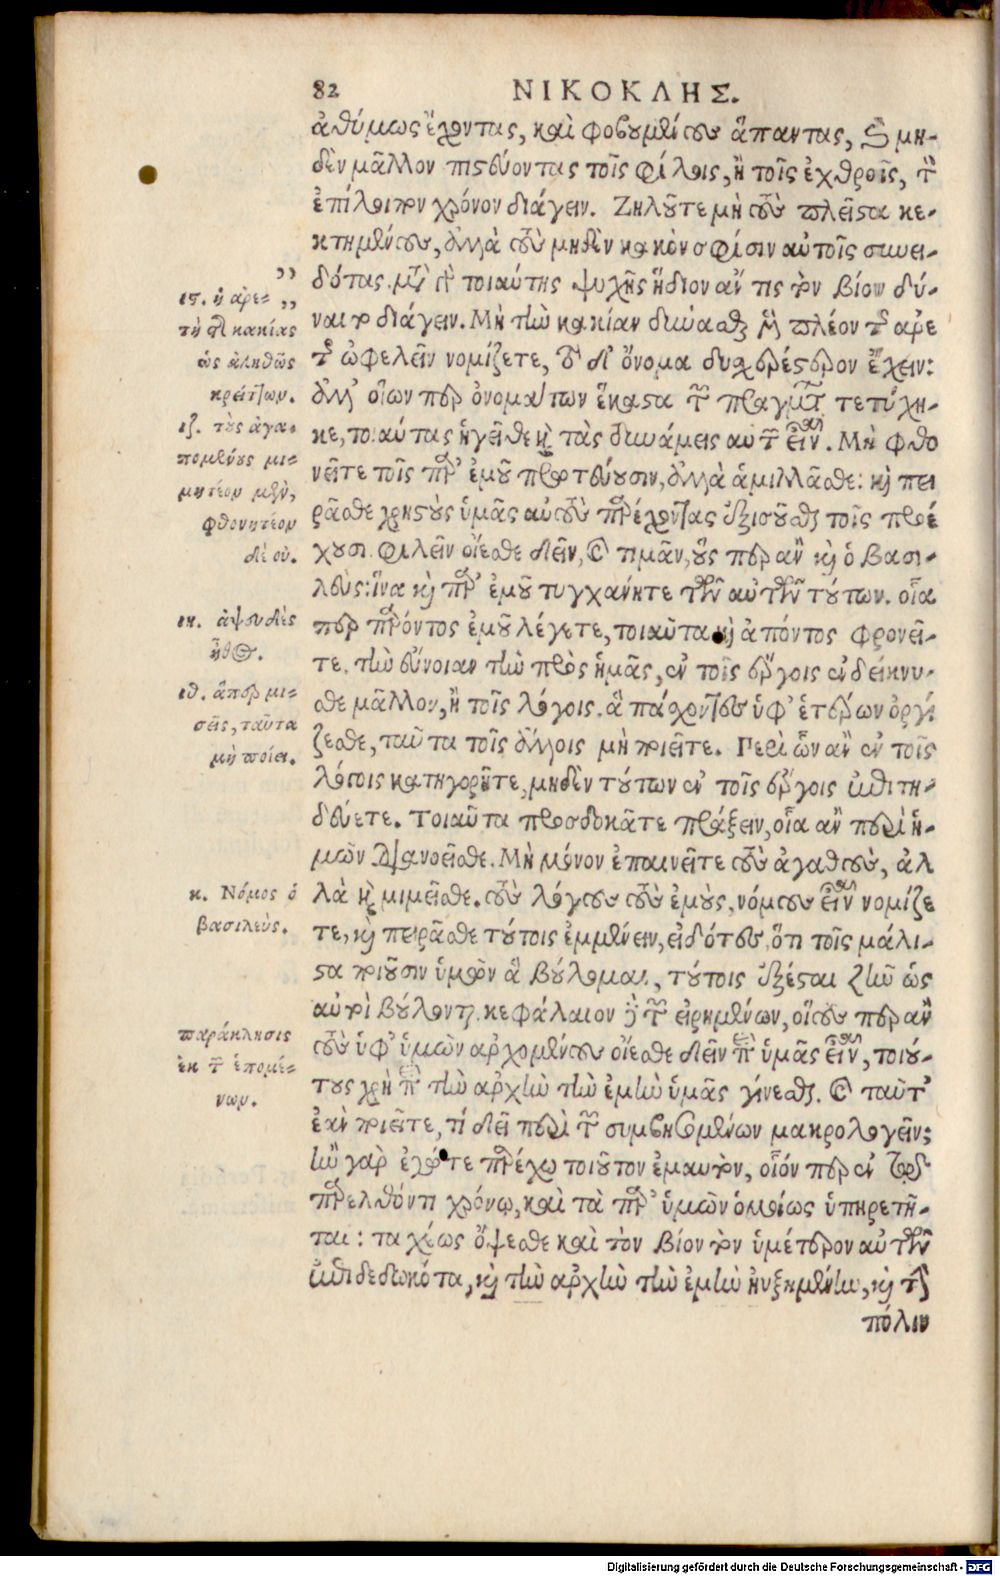 82 ΝΙΚΟΚΛΗΣ.
ἀθύμως ἔχοντας, καὶ φοβουμένους ἅπαντας, καὶ μη-
δὲν μᾶλλον πιστεύοντας τοῖς φίλοις, ἢ τοῖς ἐχθροῖς, τὸν
ἐπίλοιπον χρόνον διάγειν. Ζηλοῦτε μὴ τοὺς πλεῖστα κε-
κτημένους, ἀλλὰ τοὺς μηδὲν κακὸν σφίσιν αὐτοῖς συνει-
δότας. μετὰ γὰρ τοιαύτης ψυχῆς ἥδιον ἄν τις τὸν βίον δύ-
ναιτο διάγειν. Μὴ τὴν κακίαν δύνασθαι μὲν πλέον τῆς ἀρε
τῆς ὠφελεῖν νομίζετε, τὸ δ' ὄνομα δυσχερέστερον ἔχειν:
ἀλλ' οἵων περ ὀνομάτων ἕκαστα τῶν πραγμάτων τετύχη-
κε, τοιαύτας ἡγεῖσθε καὶ τὰς δυνάμεις αὐτῶν εἶναι. Μὴ φθο
νεῖτε τοῖς παρ' ἐμοῦ πρωτεύουσιν, ἀλλὰ ἁμιλλᾶσθε: καὶ πει
ρᾶσθε χρηστοὺς ὑμᾶς αὐτοὺς παρέχοντας ἐξισοῦσθαι τοῖς προέ
χουσι. Φιλεῖν οἴεσθε δεῖν, καὶ τιμᾶν, οὕς περ ἂν καὶ ὁ βασι-
λεύς: ἵνα καὶ παρ' ἐμοῦ τυγχάνητε τῶν αὐτῶν τούτων. οἷα
περ παρόντος ἐμοῦ λέγετε, τοιαῦτα καὶ ἀπόντος φρονεῖ-
τε. τὴν εὔνοιαν τὴν πρὸς ἡμᾶς, ἐν τοῖς ἔργοις ἐνδείκνυ-
σθε μᾶλλον, ἢ τοῖς λόγοις. ἃ πάσχοντες ὑφ' ἑτέρων ὀργί
ζεσθε, ταῦτα τοῖς ἄλλοις μὴ ποιεῖτε. Περὶ ὧν ἂν ἐν τοῖς
λόγοις κατηγορῆτε, μηδὲν τούτων ἐν τοῖς ἔργοις ἐπιτη-
δεύετε. Τοιαῦτα προσδοκᾶτε πράξειν, οἷα ἂν περὶ ἡ-
μῶν διανοεῖσθε. Μὴ μόνον ἐπαινεῖτε τοὺς ἀγαθοὺς, ἀλ
λὰ καὶ μιμεῖσθε. τοὺς λόγους τοὺς ἐμοὺς, νόμους εἶναι νομίζε
τε, καὶ πειρᾶσθε τούτοις ἐμμένειν, εἰδότες, ὅτι τοῖς μάλι-
στα ποιοῦσιν ὑμῶν ἃ βούλομαι, τούτοις ἐξέσται ζῆν ὡς
αὐτοὶ βούλονται. κεφάλαιον δὲ τῶν εἰρημένων, οἵους περ ἂν
τοὺς ὑφ' ὑμῶν ἀρχομένους οἴεσθε δεῖν περὶ ὑμᾶς εἶναι, τοιού-
τους χρὴ περὶ τὴν ἀρχὴν τὴν ἐμὴν ὑμᾶς γίνεσθαι. καὶ ταῦτ'
ἐὰν ποιεῖτε, τί δεῖ περὶ τῶν συμβησομένων μακρολογεῖν;
ἢν γὰρ ἐγώ τε παρέχω τοιοῦτον ἐμαυτὸν, οἷόν περ ἐν τῷ
παρελθόντι χρόνῳ, καὶ τὰ παρ' ὑμῶν ὁμοίως ὑπηρετῆ-
ται: ταχέως ὄψεσθε καὶ τὸν βίον τὸν ὑμέτερον αὐτῶν
ἐπιδεδωκότα, καὶ τὴν ἀρχὴν τὴν ἐμὴν ηὐξημένην, καὶ τὴν
πόλιν
ις. ἡ ἀρε- ,,
τὴ τῆς κακίας
ὡς ἀληθῶς
κρείττων.
ιζ. τοὺς ἀγα-
πομένους μι-
μητέον μὲν,
φθονητέον
δὲ οὐ.
ιη. ἀψευδὲς
ἦθος.
ιθ. ἅπερ μι-
σεῖς, ταῦτα
μὴ ποίει.
κ. Νόμος ὁ
βασιλεύς.
παράκλησις
ἐκ τῶν ἑπομέ-
νων.
Digitalisierung gefördert durch die Deutsche Forschungsgemeinschaft - DFG